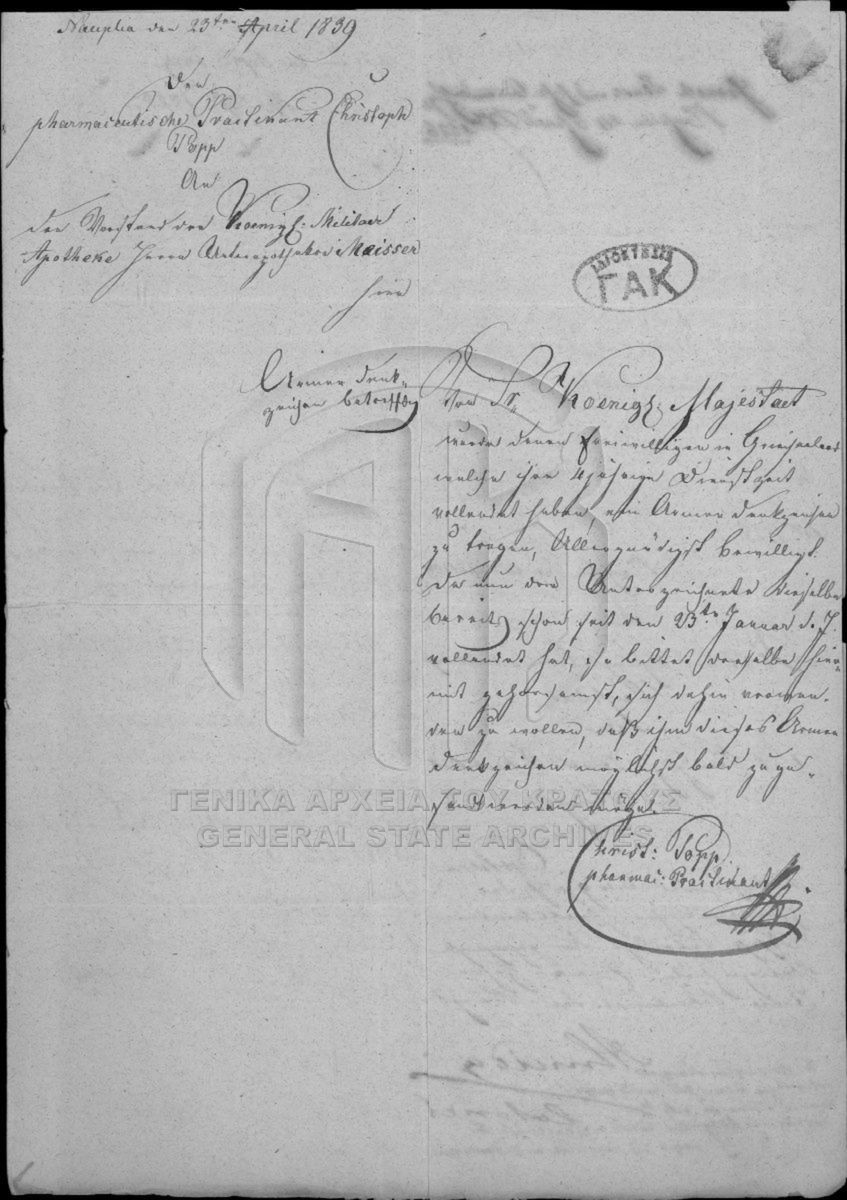 Nauplia den 23ten April 1839
Der
pharmaceutische Practikant Christoph
Popp
An
den Vorstand der Koenigl: Militaer
Apotheke Herrn Unterapotheker Meisser
hier
Armee denk-
zeichen betreffend
Von Sr. Koenigl: Majestaet
wurde denen Freiwilligen in Griechenland
welche ihre 4jährige Dienstzeit
vollendet haben, ein Armee denkzeichen
zu tragen, Allergnädigst bewilligt.
Da nun der Unterzeichnete dieselbe
bereits schon seit den 23te Januar d. J.
vollendet hat, so bittet derselbe hier-
mit gehorsamst, sich dahin verwen-
den zu wollen, daß ihm dieses Armee
denkzeichen möglichst bald zuge-
sandt werden möge.
Christ: Popp
pharmac: Practikant
ΓΑΚ
ΓΕΝΙΚΑ ΑΡΧΕΙΑ ΤΟΥ ΚΡΑΤΟΥΣ
GENERAL STATE ARCHIVES